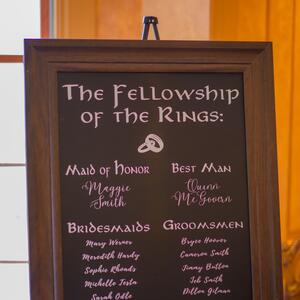 The Fellowship
of the Rings:
Maid of Honor
Maggie
Smith
Best Man
Quinn
McGovern
Bridesmaids
Mary Werner
Meredith Hardy
Sophie Rhoads
Michelle Testa
Sarah Odle
Groomsmen
Bryce Hoover
Cameron Smith
Jimmy Button
Job Smith
Dillon Gilman